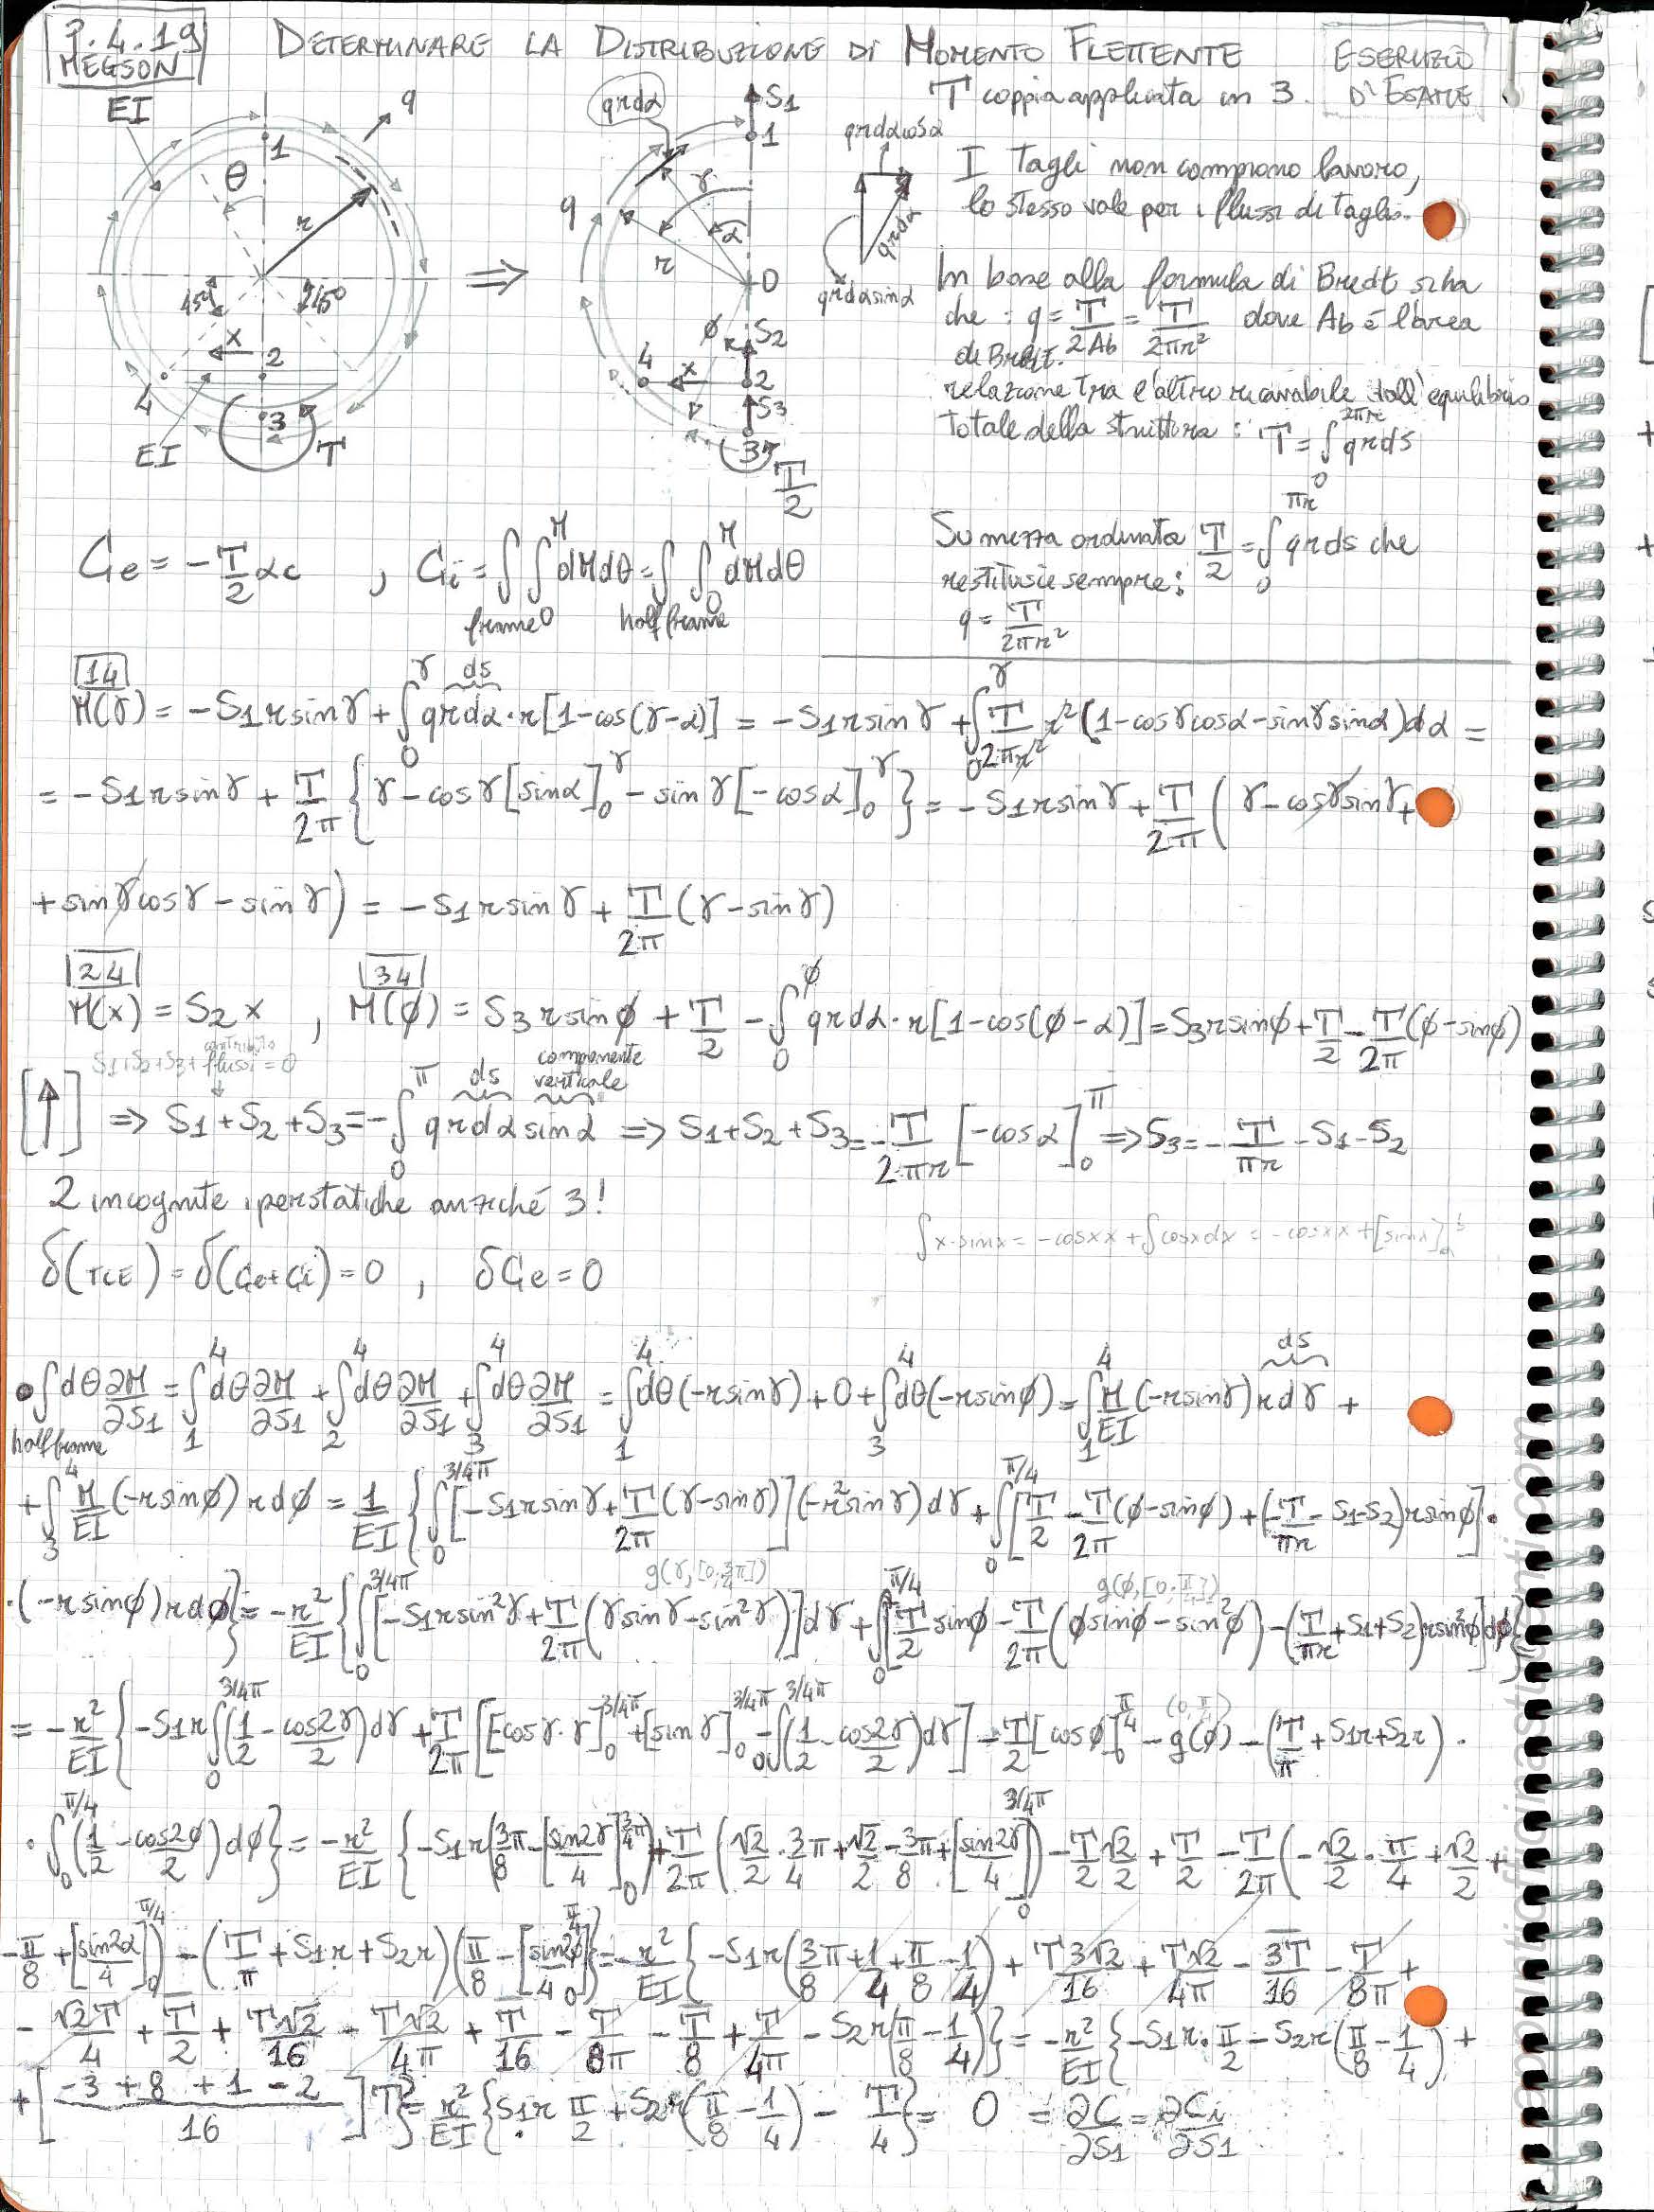 P.4.19
MEGSON
DETERMINARE LA DISTRIBUZIONE DI MOMENTO FLETTENTE
ESERCIZIO
D'ESAME
T coppia applicata in 3.
EI
q
1
θ
r
45°
45°
x
2
4
3
EI
T
⇒
qrdα
S1
1
γ
α
q
r
0
ϕ
S2
4
x
2
S3
3
T/2
qrdαcosα
qrdα
qrdαsinα
I Tagli non compiono lavoro,
lo stesso vale per i flussi di taglio.
In base alla formula di Bredt si ha
che : q = T/2Ab = T/2πr² dove Ab è l'area
di Bredt.
relazione tra l'altro ricavabile dall'equilibrio
totale della struttura : T = ∫₀^{2πr} qrds
Su mezza ordinata T/2 = ∫₀^{πr} qrds che
restituisce sempre:
q = T/2πr²
Ce = -T/2 αc , Ci = ∫_{frame} ∫₀^M dMdθ = ∫_{half frame} ∫₀^M dMdθ
14
M(γ) = -S1rsinγ + ∫₀^γ qrdα·r[1-cos(γ-α)] = -S1rsinγ + ∫₀^γ T/2πr² r²(1-cosγcosα-sinγsinα)dα =
ds
= -S1rsinγ + T/2π {γ-cosγ[sinα]₀^γ - sinγ[-cosα]₀^γ} = -S1rsinγ + T/2π (γ-cosγsinγ+
+sinγcosγ-sinγ) = -S1rsinγ + T/2π (γ-sinγ)
24
34
M(x) = S2x , M(ϕ) = S3rsinϕ + T/2 - ∫₀^ϕ qrdα·r[1-cos(ϕ-α)] = S3rsinϕ + T/2 - T/2π (ϕ-sinϕ)
S1+S2+S3+flussi=0
contributo
ds
componente verticale
[↑] ⇒ S1+S2+S3 = -∫₀^π qrdαsinα ⇒ S1+S2+S3 = -T/2πr [-cosα]₀^π ⇒ S3 = -T/πr -S1-S2
2 incognite iperstatiche anziché 3!
∫x·sinx = -cosx x + ∫cosxdx = -cosx x + [sinx]
δ(TCE) = δ(Ce+Ci) = 0 , δCe = 0
ds
• ∫dθ ∂M/∂S1 = ∫₁⁴ dθ ∂M/∂S1 + ∫₂⁴ dθ ∂M/∂S1 + ∫₃⁴ dθ ∂M/∂S1 = ∫₁⁴ dθ(-rsinγ) + 0 + ∫₃⁴ dθ(-rsinϕ) = ∫₁⁴ M/EI (-rsinγ)rdγ +
half frame
+ ∫₃⁴ M/EI (-rsinϕ)rdϕ = 1/EI {∫₀^{3/4π} [-S1rsinγ + T/2π (γ-sinγ)](-r²sinγ)dγ + ∫₀^{π/4} [T/2 - T/2π (ϕ-sinϕ) + (-T/πr -S1-S2)rsinϕ]·
g(γ,[0;3/4π])
g(ϕ,[0;π/4])
·(-rsinϕ)rdϕ} = -r²/EI {∫₀^{3/4π} [-S1rsin²γ + T/2π (γsinγ-sin²γ)]dγ + ∫₀^{π/4} [T/2 sinϕ - T/2π (ϕsinϕ-sin²ϕ) - (T/πr +S1+S2)rsin²ϕ]dϕ}
= -r²/EI {-S1r∫₀^{3/4π} (1/2 - cos2γ/2)dγ + T/2π [[cosγ·γ]₀^{3/4π} + [sinγ]₀^{3/4π} - ∫₀^{3/4π} (1/2 - cos2γ/2)dγ] - T/2 [cosϕ]₀^{π/4} - g(ϕ) - (T/π +S1r+S2r) ·
(0,π/4)
·∫₀^{π/4} (1/2 - cos2ϕ/2)dϕ} = -r²/EI {-S1r(3π/8 - [sin2γ/4]₀^{3/4π}) + T/2π (√2/2 · 3/4π + √2/2 - 3π/8 + [sin2γ/4]₀^{3/4π}) - T/2 √2/2 + T/2 - T/2π (-√2/2 · π/4 + √2/2 +
-π/8 + [sin2α/4]₀^{π/4}) - (T/π +S1r+S2r)(π/8 - [sin2ϕ/4]₀^{π/4})} = -r²/EI {-S1r(3π/8 + 1/4 + π/8 - 1/4) + T3√2/16 + T√2/4π - 3T/16 - T/8π +
- √2T/4 + T/2 + T√2/16 - T√2/4π + T/16 - T/8π - T/8 + T/4π - S2r(π/8 - 1/4)} = -r²/EI {-S1r·π/2 - S2r(π/8 - 1/4) +
+[(-3+8+1-2)/16]T} = r²/EI {S1r π/2 + S2r(π/8 - 1/4) - T/4} = 0 = ∂C/∂S1 = ∂Ci/∂S1